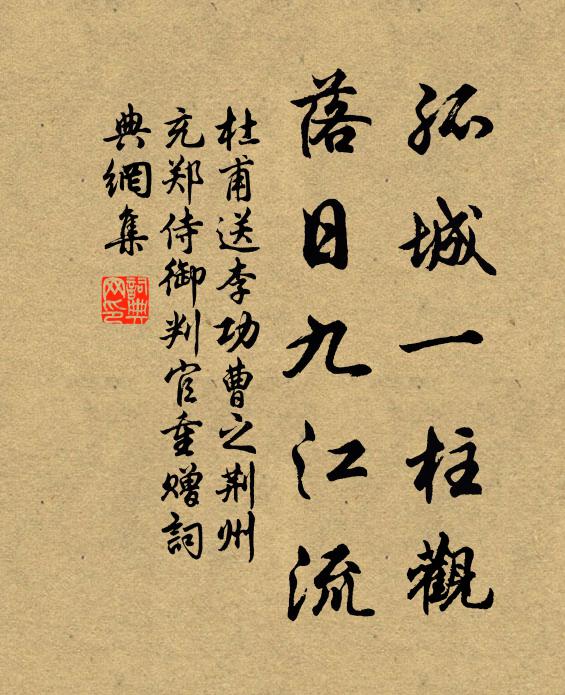 孤城一柱觀
落日九江流
杜甫送李功曹之荆州
充郑侍御判官重赠詞
典網集
詞典
网印